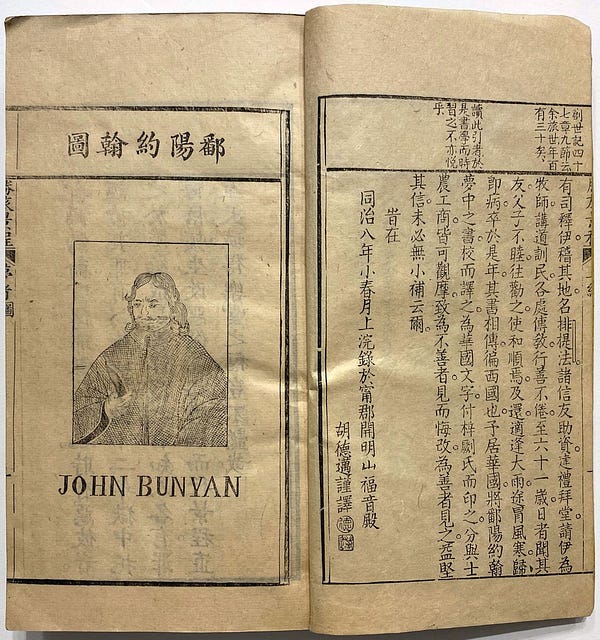 創世記四十
七章九節云
余旅世年百
有三十矣
讀此引者於
是書學而時
習之不亦悅
乎
有司釋伊稽其地名排提法諸信友助資建禮拜堂請伊為
牧師講道訓民各處傳教行善不倦至六十一歲日者聞其
友父子不睦往勸之使和順焉及還適逢大雨途冒風寒歸
即病卒於是年其書相傳徧西國也予居華國將鄱陽約翰
夢中之書校而譯之為華國文字付梓劂氏而印之分與士
農工商皆可觀摩致為不善者見而悔改為善者見之益堅
其信未必無小補云爾
旹在
同治八年小春月上浣錄於甯郡開明山福音殿
胡德邁謹譯
鄱陽約翰圖
JOHN BUNYAN